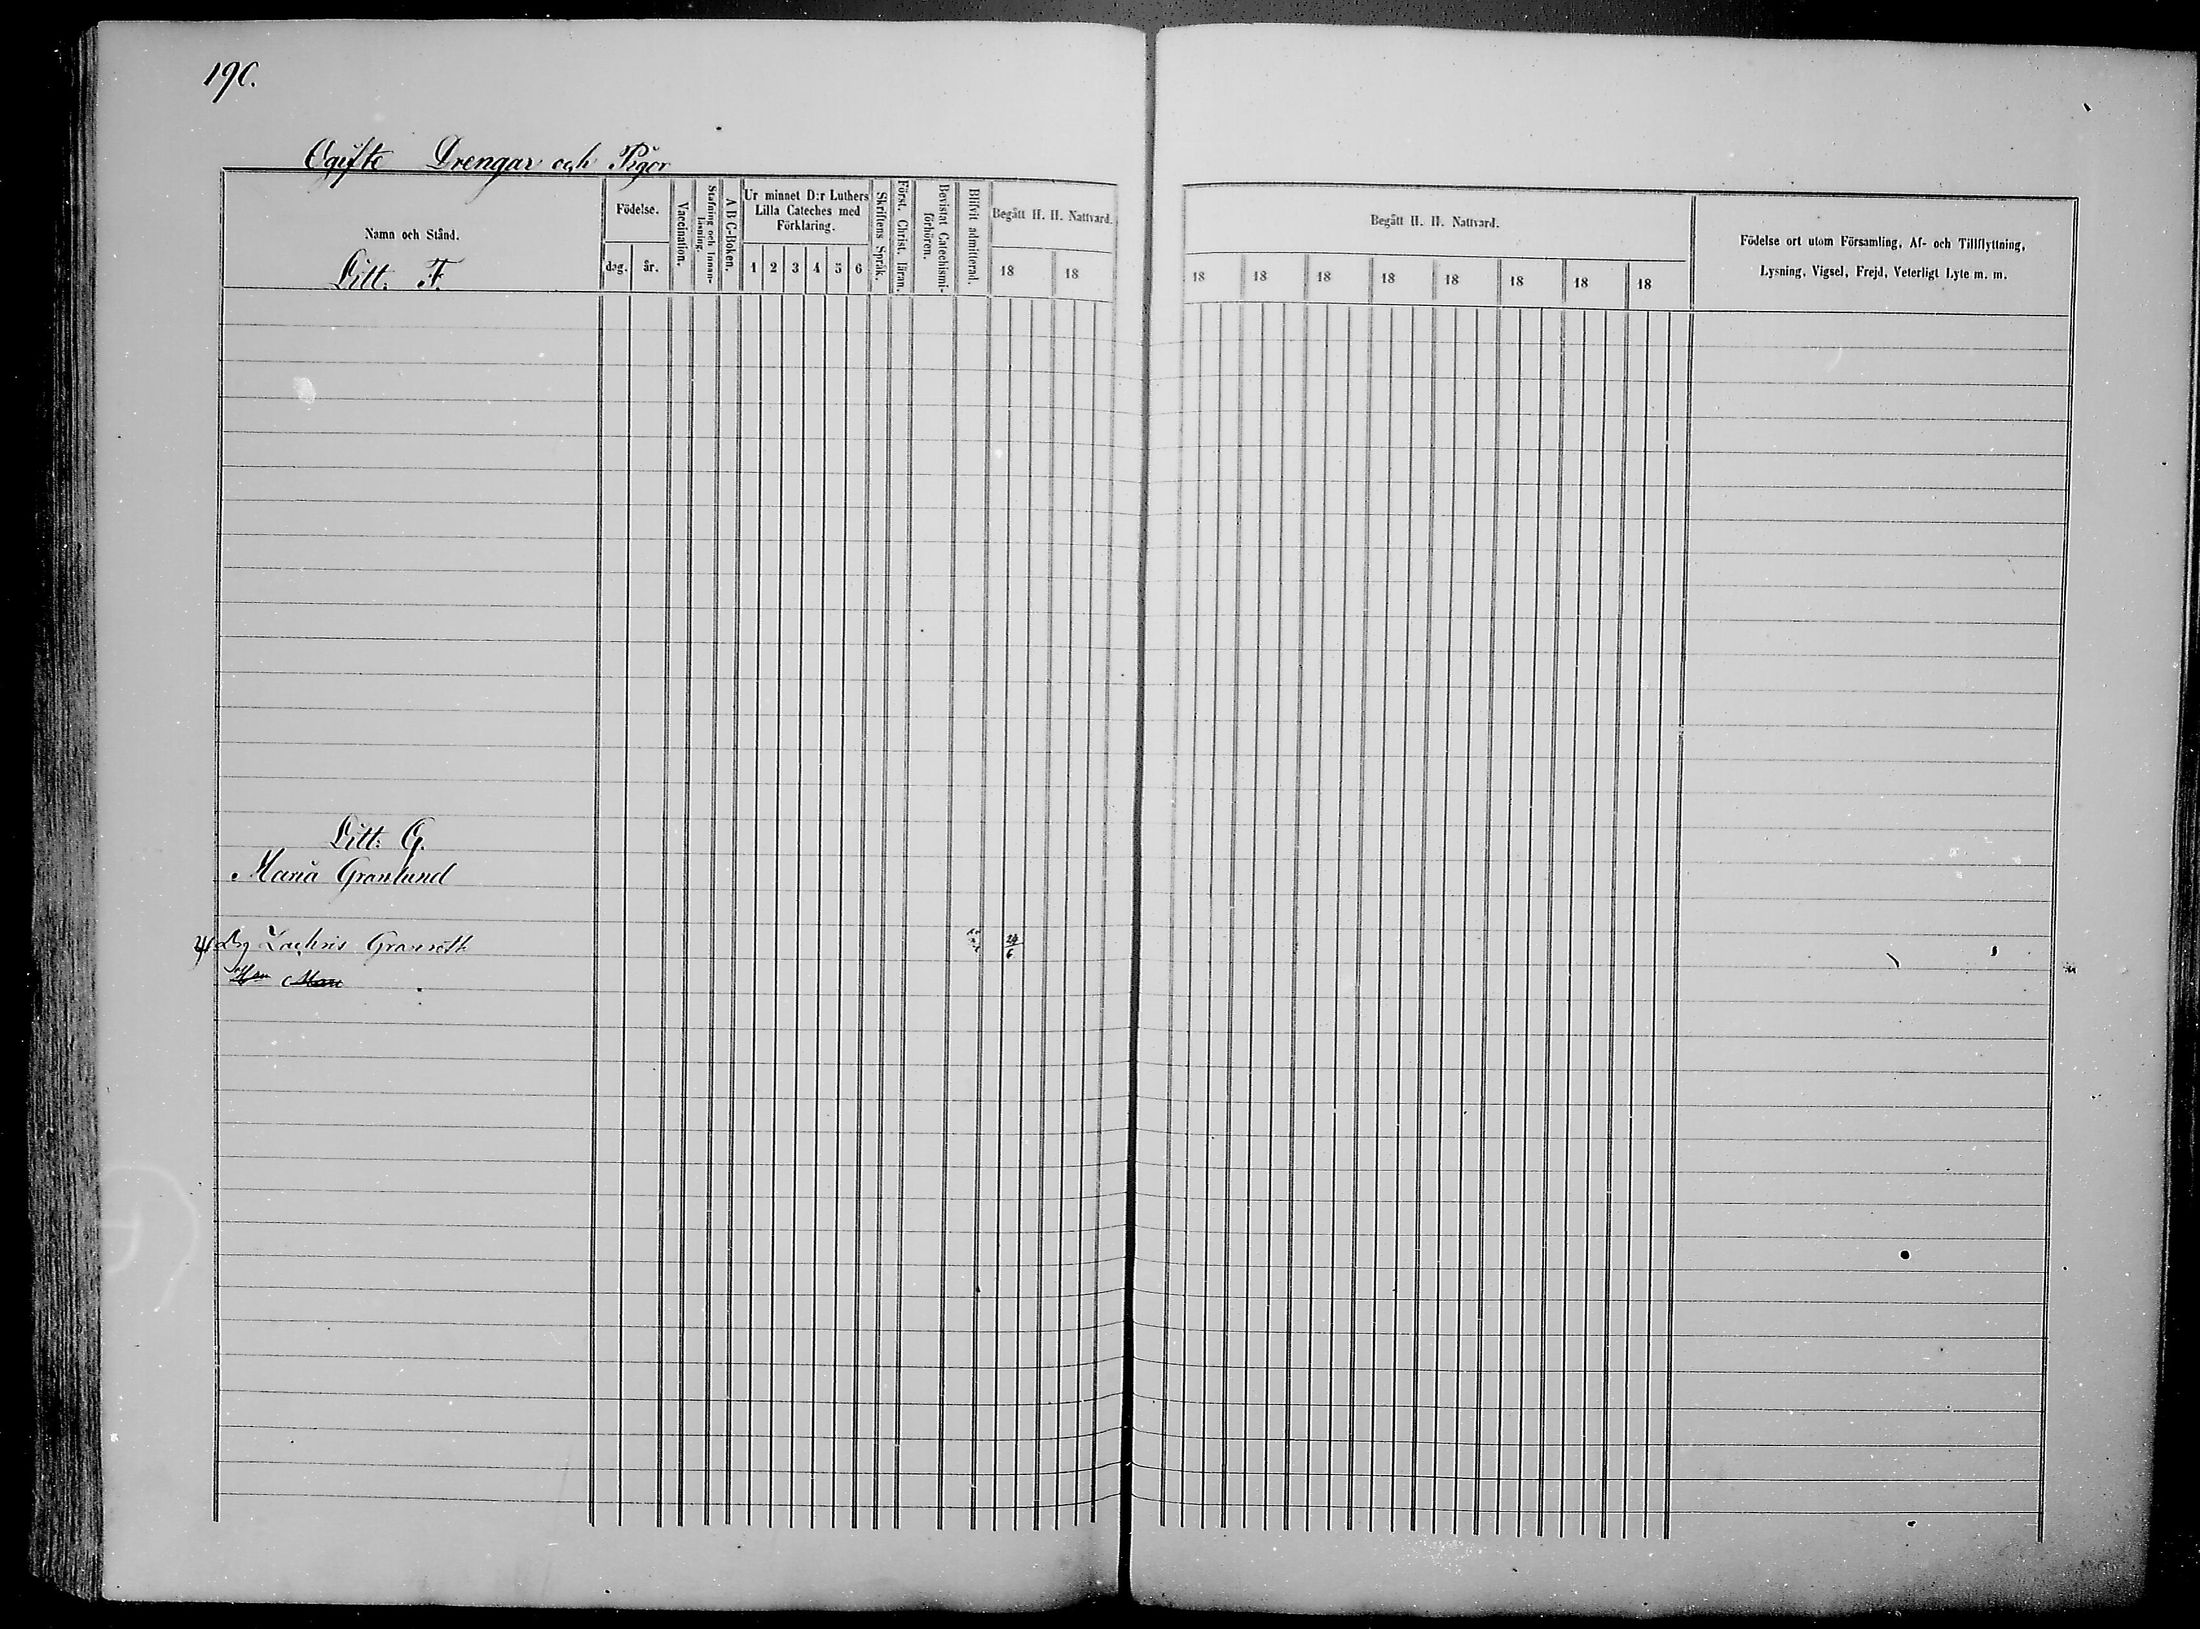 190.
Ogifte Drengar och Pigor
Namn och Stånd.
Litt. F.
Födelse.
dag. år.
Vaccination.
Stafning och Innan-läsning.
A B C-Boken.
Ur minnet D:r Luthers
Lilla Cateches med
Förklaring.
1 2 3 4 5 6
Skriftens Språk.
Först. Christ. läran.
Bevistat Catechismi-förhören.
Blifvit admitterad.
Begått H. H. Nattvard.
18 18
Begått H. H. Nattvard.
18 18 18 18 18 18 18 18
Födelse ort utom Församling, Af- och Tillflyttning,
Lysning, Vigsel, Frejd, Veterligt Lyte m. m.
Litt: G.
Maria Granlund
Drg Zachris Granroth 24/6